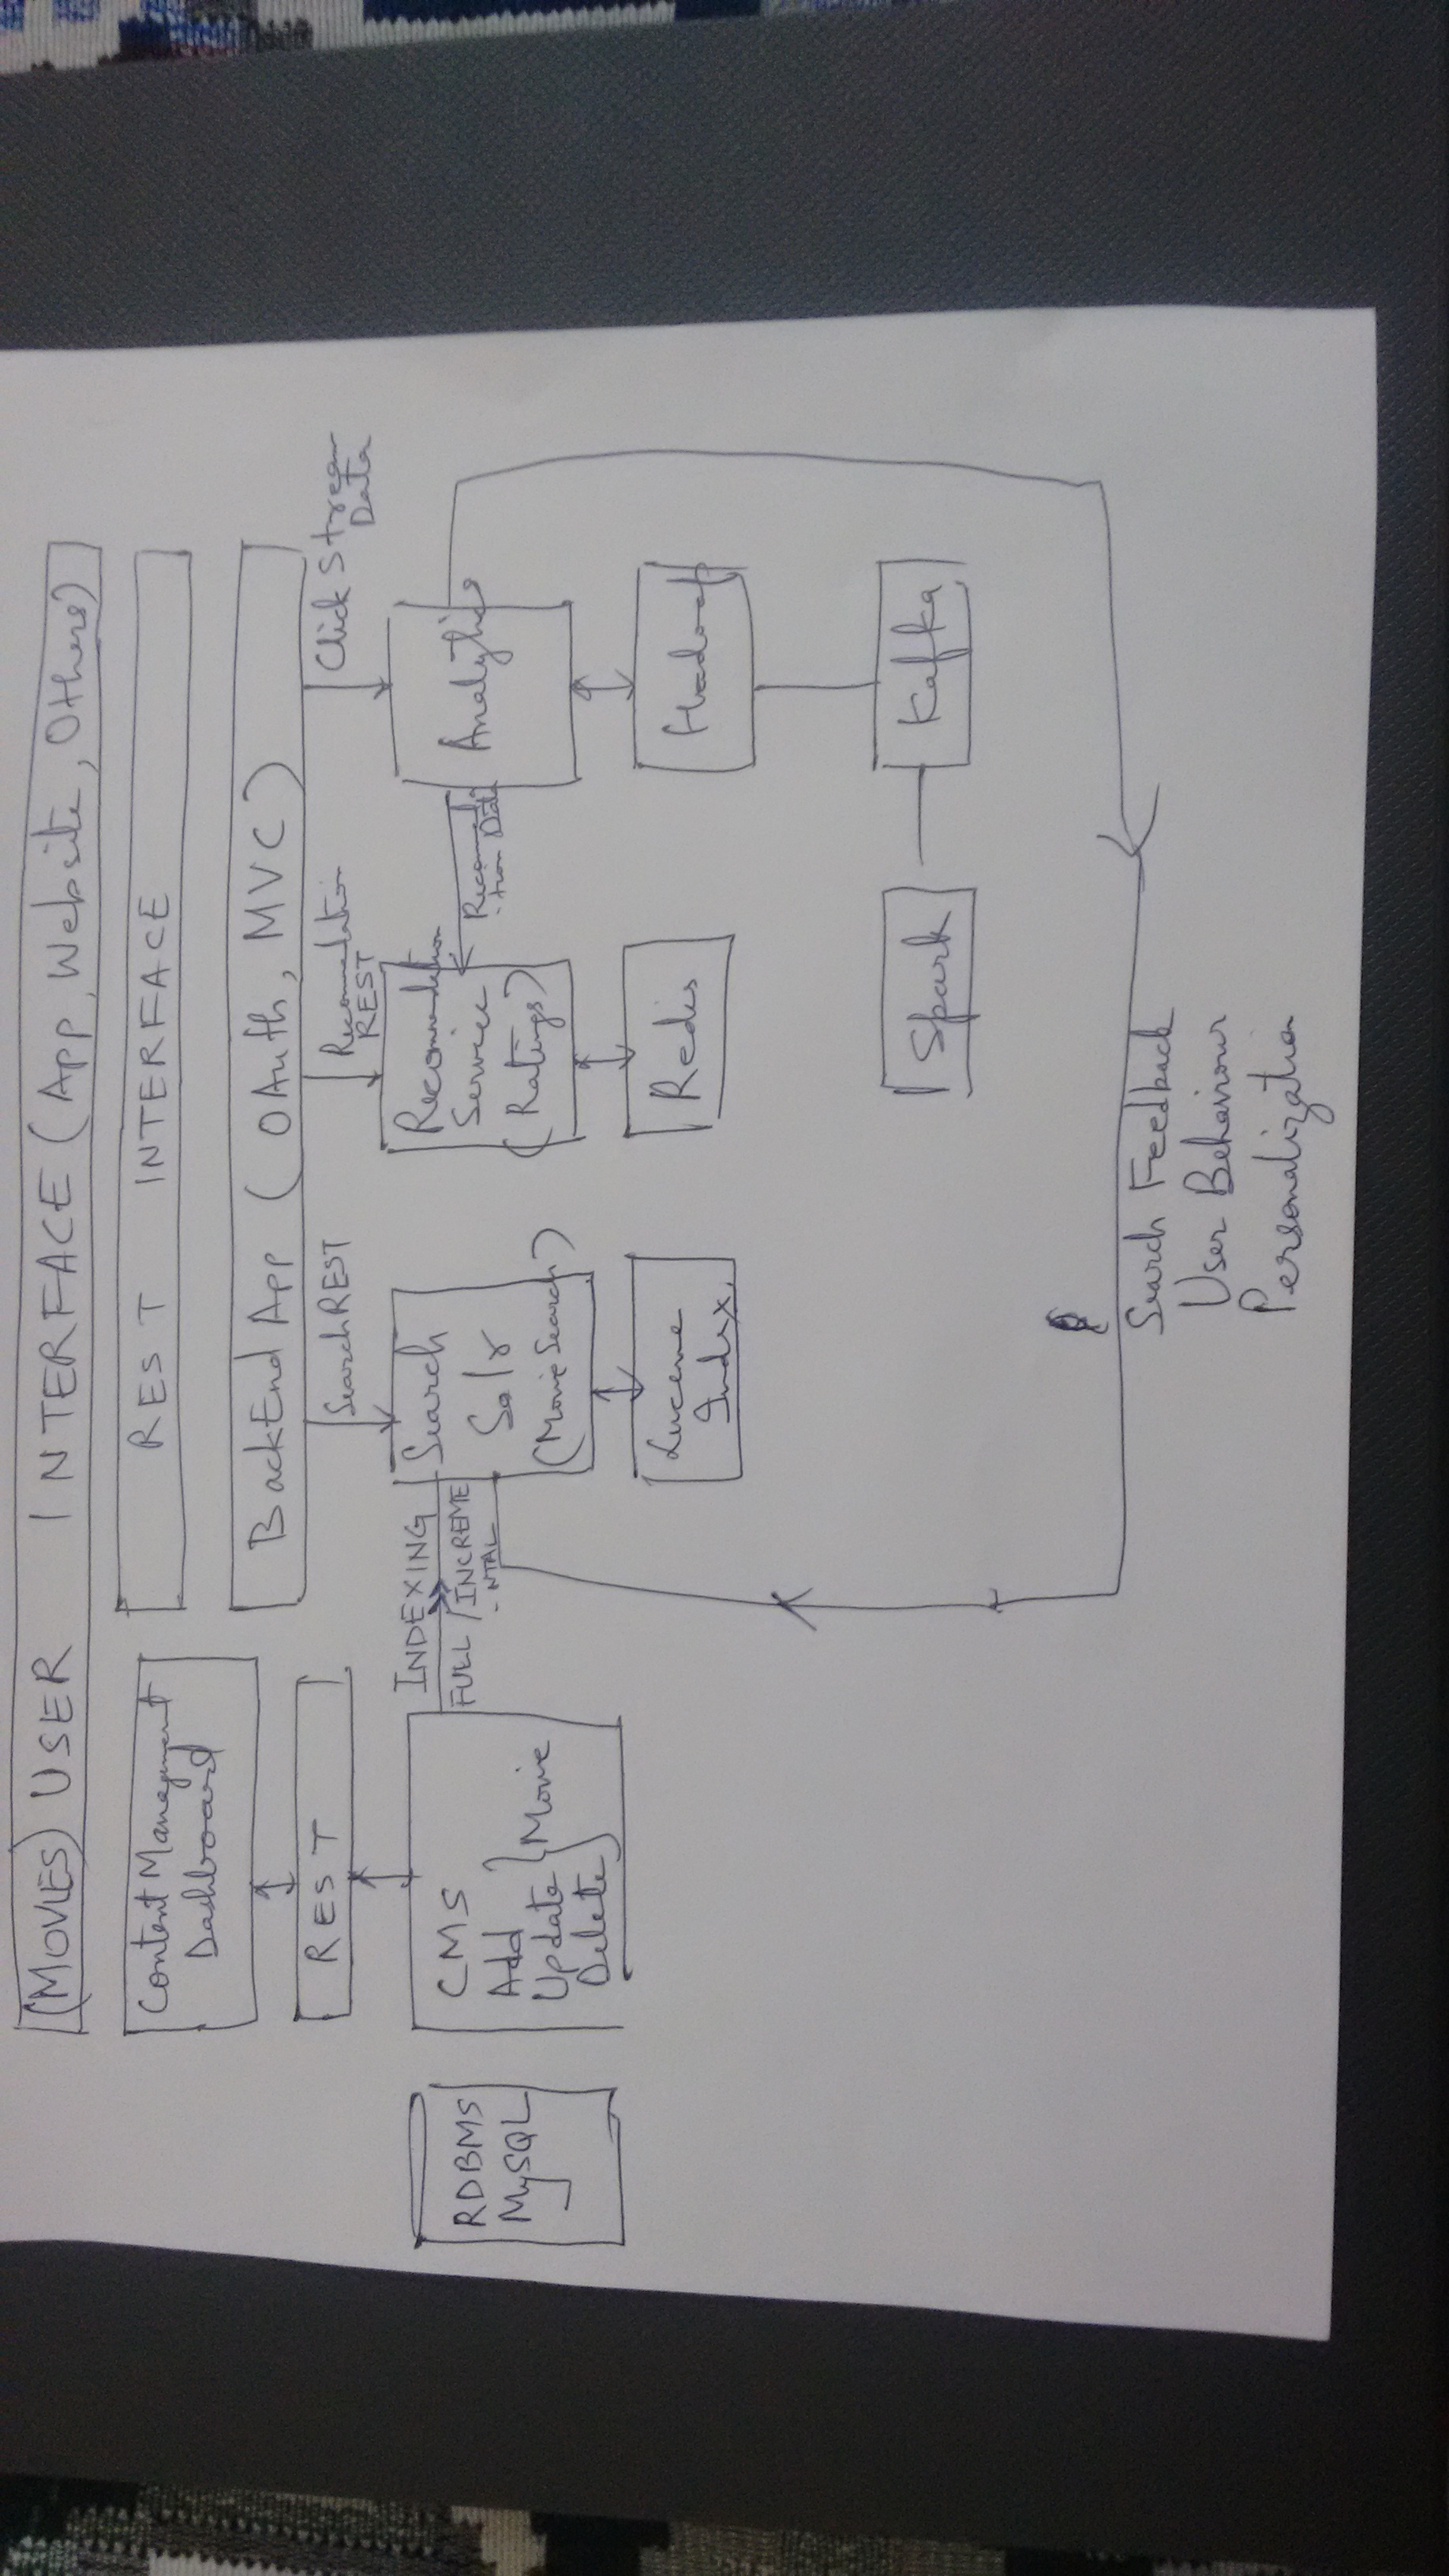 (MOVIES) USER INTERFACE (App, Website, Others)
REST INTERFACE
BackEnd App (OAuth, MVC)
Content Management
Dashboard
REST
Search REST
Recomendation
REST
Click Stream
Data
RDBMS
MySQL
CMS
Add
Update } Movie
Delete
INDEXING
FULL / INCREME
-NTAL
Search
Solr
(Movie Search)
Recomendation
Service
(Ratings)
Recomenda
-tion Data
Analytics
Lucene
Index
Redis
Hadoop
Spark
Kafka
Search Feedback
User Behaviour
Personalization